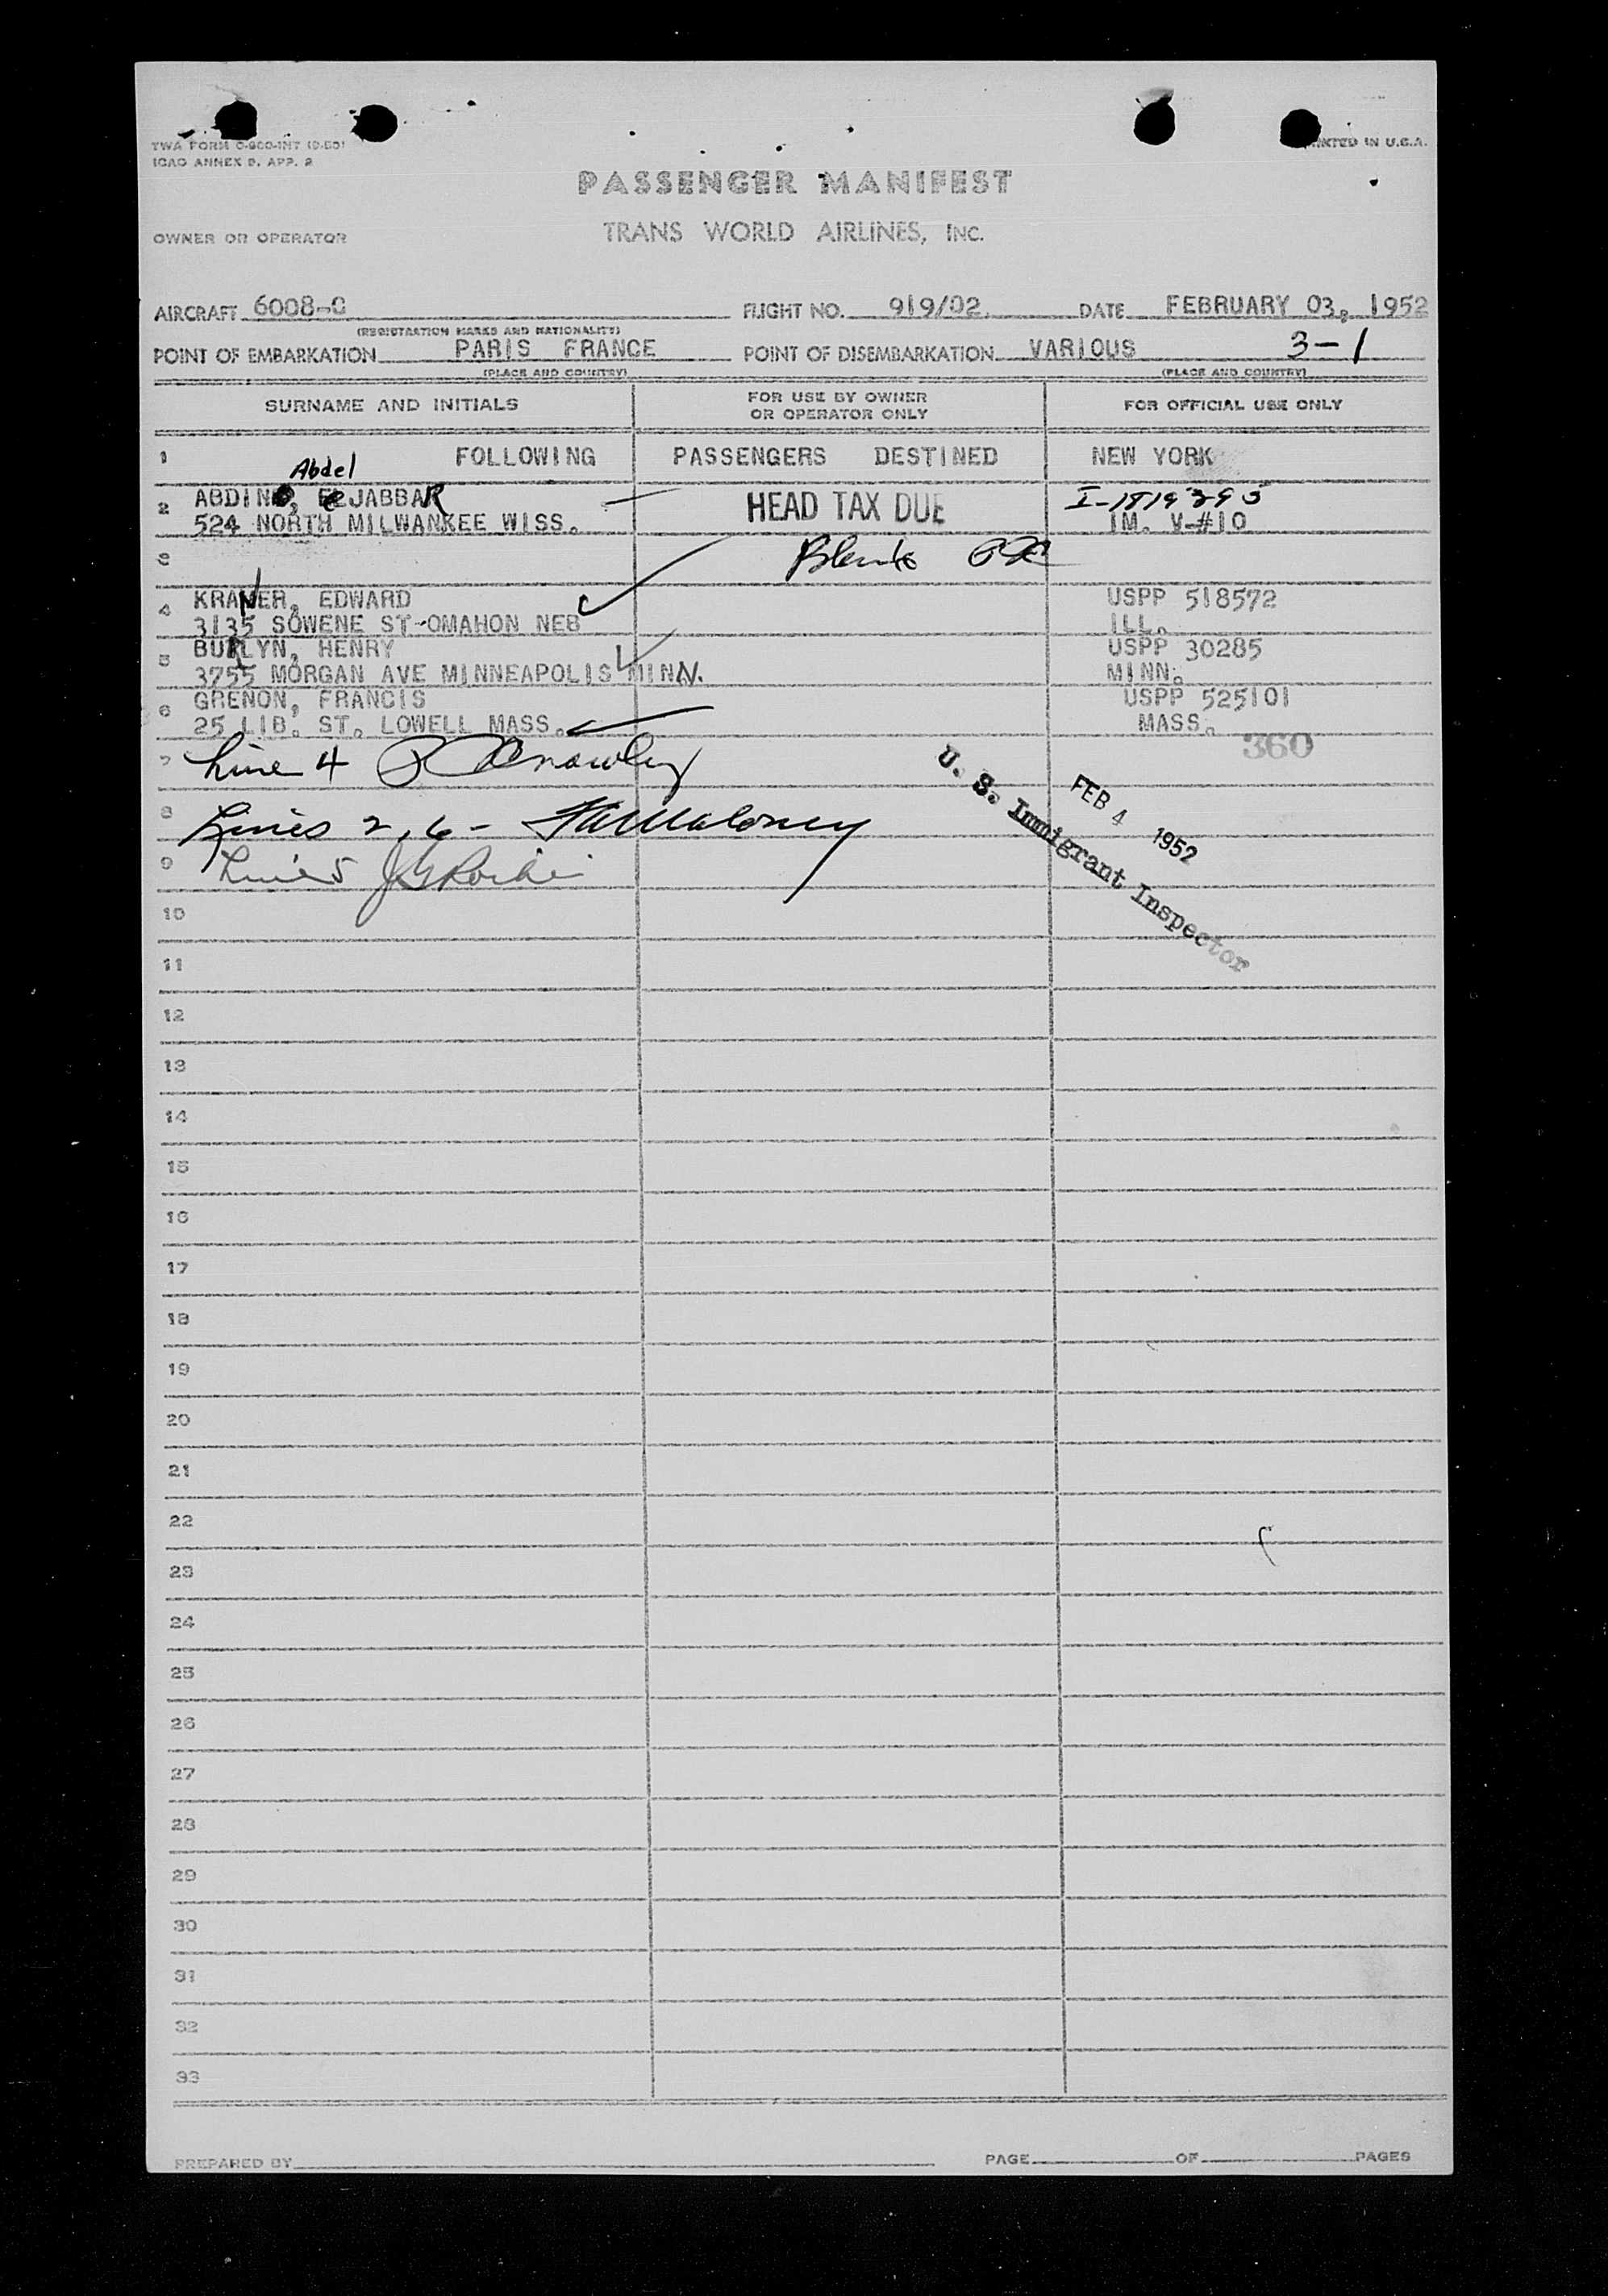 TWA FORM O-900-INT (9-50)
ICAO ANNEX 9, APP. 2
PRINTED IN U.S.A.
PASSENGER MANIFEST
OWNER OR OPERATOR TRANS WORLD AIRLINES, INC.
AIRCRAFT 6008-C FLIGHT NO. 919/02 DATE FEBRUARY 03, 1952
(REGISTRATION MARKS AND NATIONALITY)
POINT OF EMBARKATION PARIS FRANCE POINT OF DISEMBARKATION VARIOUS 3-1
(PLACE AND COUNTRY) (PLACE AND COUNTRY)
SURNAME AND INITIALS FOR USE BY OWNER OR OPERATOR ONLY FOR OFFICIAL USE ONLY
1 FOLLOWING PASSENGERS DESTINED NEW YORK
Abdel
2 ABDIN, JABBAR HEAD TAX DUE I-1819395
524 NORTH MILWANKEE WISS. IM. V-#10
3
4 KRANER, EDWARD USPP 518572
3135 SOWENE ST-OMAHON NEB ILL.
5 BURLYN, HENRY USPP 30285
3755 MORGAN AVE MINNEAPOLIS MINN. MINN.
6 GRENON, FRANCIS USPP 525101
25 LIB. ST. LOWELL MASS. MASS.
360
7 Line 4
8 Lines 2, 6 - Maloney
9 Line 5
U. S. Immigrant Inspector
FEB 4 1952
10
11
12
13
14
15
16
17
18
19
20
21
22
23
24
25
26
27
28
29
30
31
32
33
PREPARED BY PAGE OF PAGES